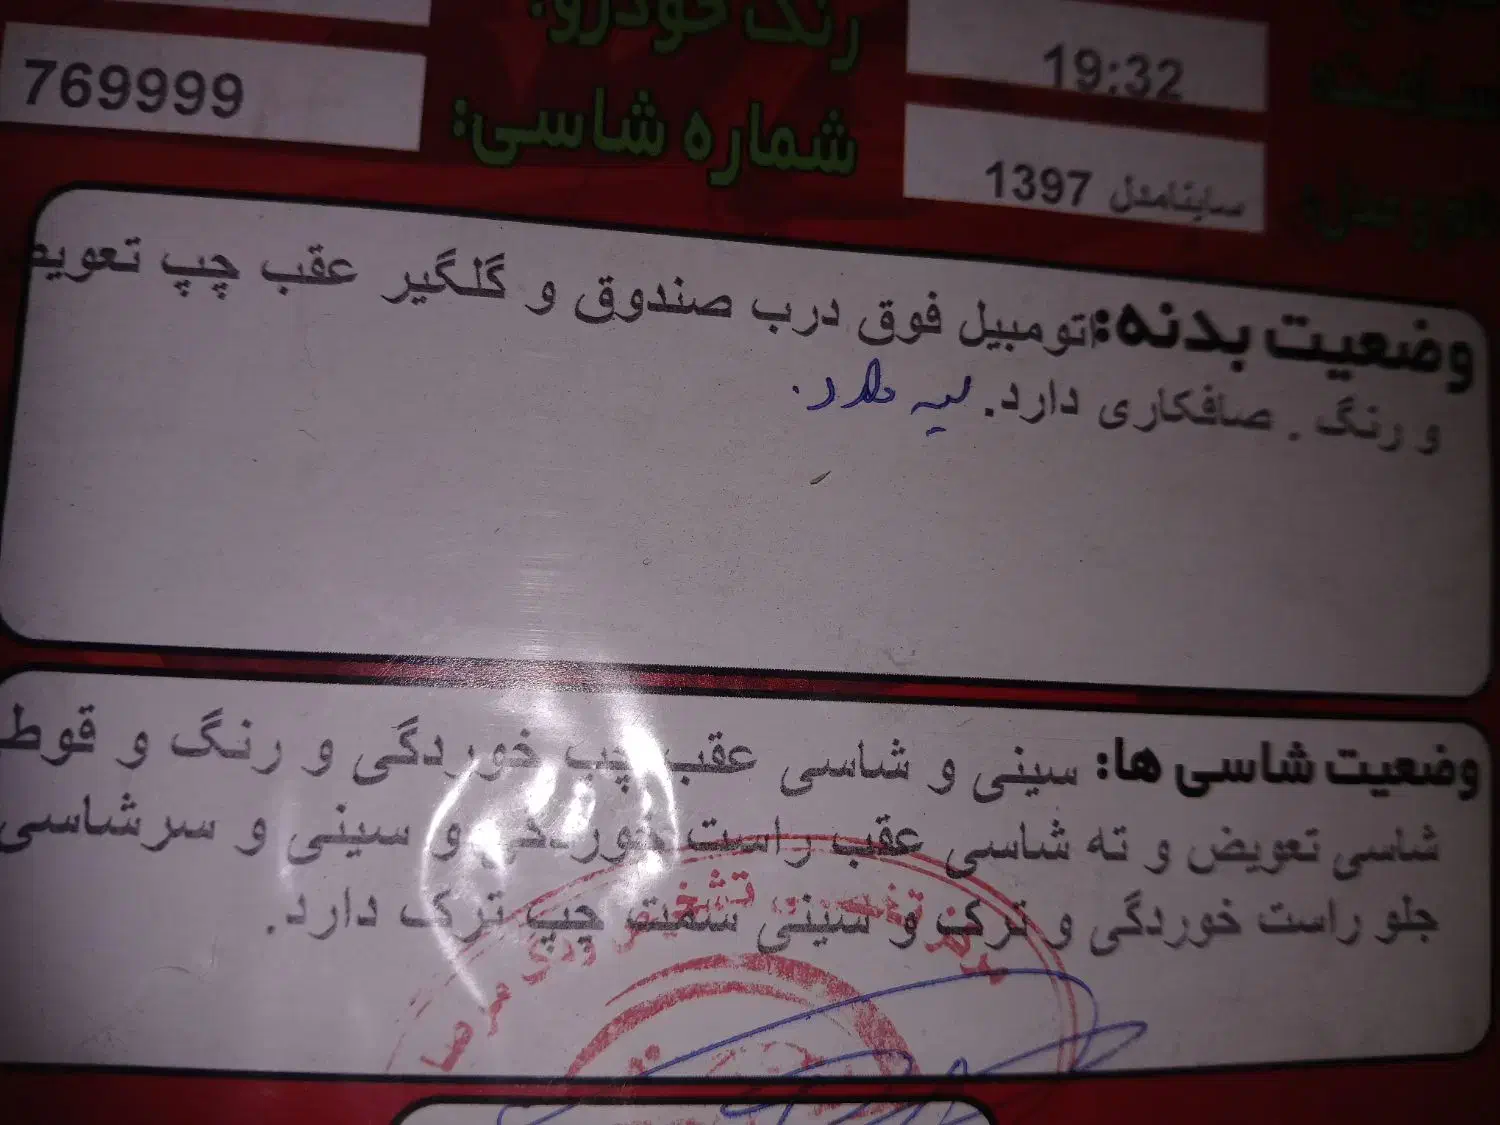 رنگ خودرو:
19:32
ساعت
شماره شاسی:
769999
ساینامدل 1397
وضعیت بدنه:اتومبیل فوق درب صندوق و گلگیر عقب چپ تعویض
و رنگ . صافکاری دارد. لبه دارد.
وضعیت شاسی ها: سینی و شاسی عقب چپ خوردگی و رنگ و قوطی
شاسی تعویض و ته شاسی عقب راست خوردگی و سینی و سرشاسی
جلو راست خوردگی و ترک و سینی سمت چپ ترک دارد.
تشخیص